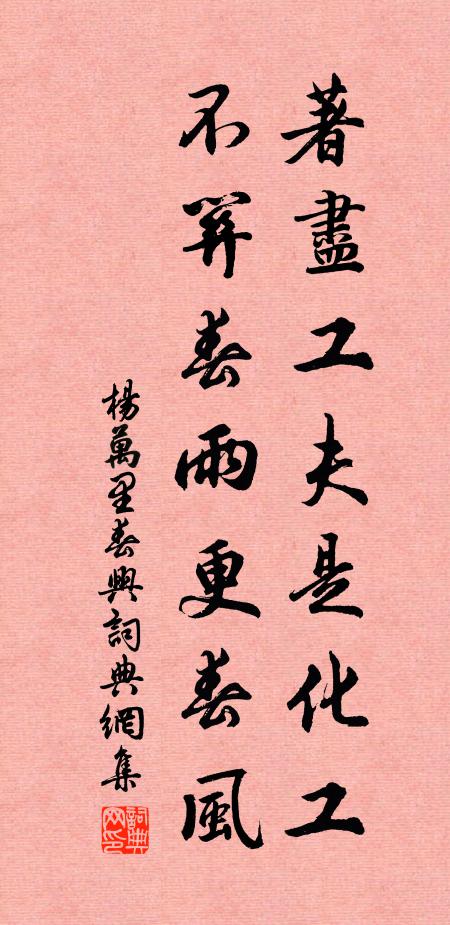 著盡工夫是化工
不筭春雨更春風
楊萬里春興詞典網集
詞典网印